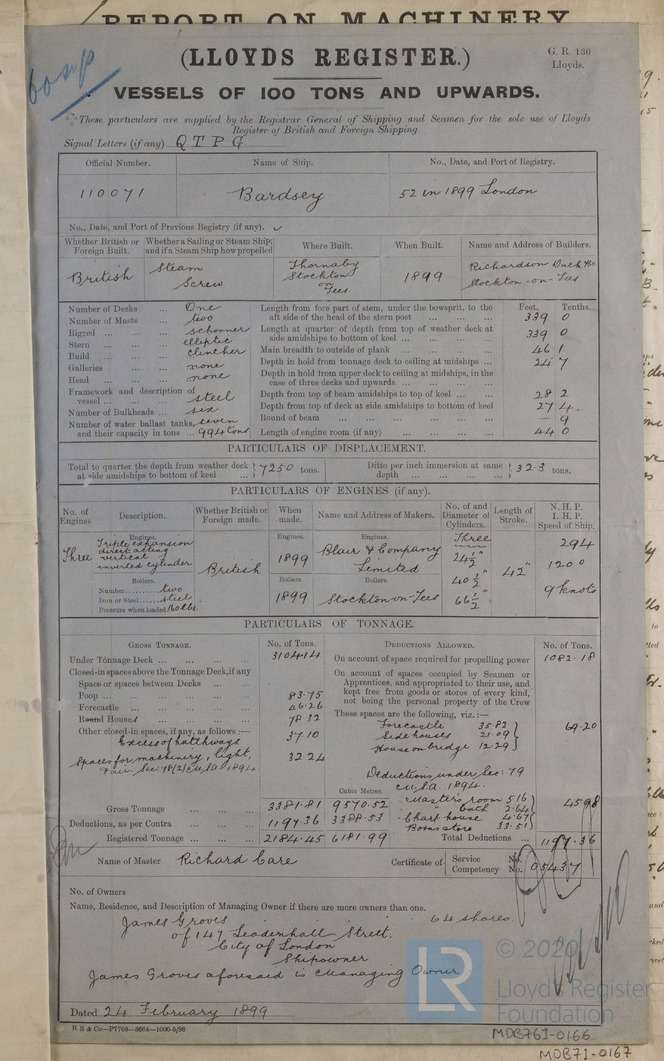 REPORT ON MACHINERY
60 sup
(LLOYDS REGISTER.)
G. R. 130
Lloyds.
VESSELS OF 100 TONS AND UPWARDS.
These particulars are supplied by the Registrar General of Shipping and Seamen for the sole use of Lloyds
Register of British and Foreign Shipping.
Signal Letters (if any) Q T P G
Official Number. Name of Ship. No., Date, and Port of Registry.
110071 Bardsey 52 in 1899 London
No., Date, and Port of Previous Registry (if any).
Whether British or Foreign Built. Whether a Sailing or Steam Ship; and if a Steam Ship how propelled Where Built. When Built. Name and Address of Builders.
British Steam Screw Thornaby Stockton on Tees 1899 Richardson Duck & Co Stockton-on-Tees
Number of Decks ... One
Number of Masts ... two
Rigged ... schooner
Stern ... elliptic
Build ... clincher
Galleries ... none
Head ... none
Framework and description of vessel ... steel
Number of Bulkheads ... six
Number of water ballast tanks, seven
and their capacity in tons ... 994 tons
Feet. Tenths.
Length from fore part of stem, under the bowsprit, to the aft side of the head of the stern post ... 339 0
Length at quarter of depth from top of weather deck at side amidships to bottom of keel ... 339 0
Main breadth to outside of plank ... 46 1
Depth in hold from tonnage deck to ceiling at midships ... 24 7
Depth in hold from upper deck to ceiling at midships, in the case of three decks and upwards ...
Depth from top of beam amidships to top of keel ... 28 2
Depth from top of deck at side amidships to bottom of keel 27 4
Round of beam ... — 9
Length of engine room (if any) ... 44 0
PARTICULARS OF DISPLACEMENT.
Total to quarter the depth from weather deck at side amidships to bottom of keel ... 7250 tons. Ditto per inch immersion at same depth ... 32.3 tons.
PARTICULARS OF ENGINES (if any).
No. of Engines Description. Whether British or Foreign made. When made. Name and Address of Makers. No. of and Diameter of Cylinders. Length of Stroke. N. H. P. I. H. P. Speed of Ship.
Engines. Engines. Engines. Three
Three Triple expansion direct acting vertical inverted cylinder British 1899 Blair & Company Limited 24½" 42" 294
Boilers. Boilers Boilers 40½" 1200
Number......two
Iron or Steel......steel
Pressure when loaded 160 lbs.
1899 Stockton-on-Tees 66½" 9 knots
PARTICULARS OF TONNAGE.
GROSS TONNAGE. No. of Tons.
Under Tonnage Deck ... 3104.14
Closed-in spaces above the Tonnage Deck, if any
Space or spaces between Decks ...
Poop ... 83.75
Forecastle ... 46.26
Round Houses ... 78.32
Other closed-in spaces, if any, as follows :— 37.10
Excess of hatchways
Spaces for machinery, light, 32.24
Gross Tonnage ... 3381.81 9570.52
Deductions, as per Contra ... 1197.36 3388.53
Registered Tonnage ... 2184.45 6181.99
Cubic Metres.
DEDUCTIONS ALLOWED. No. of Tons.
On account of space required for propelling power 1082.18
On account of spaces occupied by Seamen or Apprentices, and appropriated to their use, and kept free from goods or stores of every kind, not being the personal property of the Crew
These spaces are the following, viz. :—
Forecastle 35.82
Side houses 21.09 69.20
House on bridge 12.29
Deductions under Sec: 79
M.S.A. 1894.
Master's room 5.16
" bath 2.64 45.98
Chart house 4.67
Bosns store 33.51
Total Deductions ... 1197.36
Name of Master Richard Care Certificate of Service No. Competency No. 05437
No. of Owners
Name, Residence, and Description of Managing Owner if there are more owners than one.
James Groves 64 shares.
of 147 Leadenhall Street,
City of London
Shipowner
James Groves aforesaid is Managing Owner
Dated 24 February 1899
R S & Co—P7708—3664—1000-5/98
LR
© 2020
Lloyd's Register
Foundation
MDB761-0166
MDB71-0167